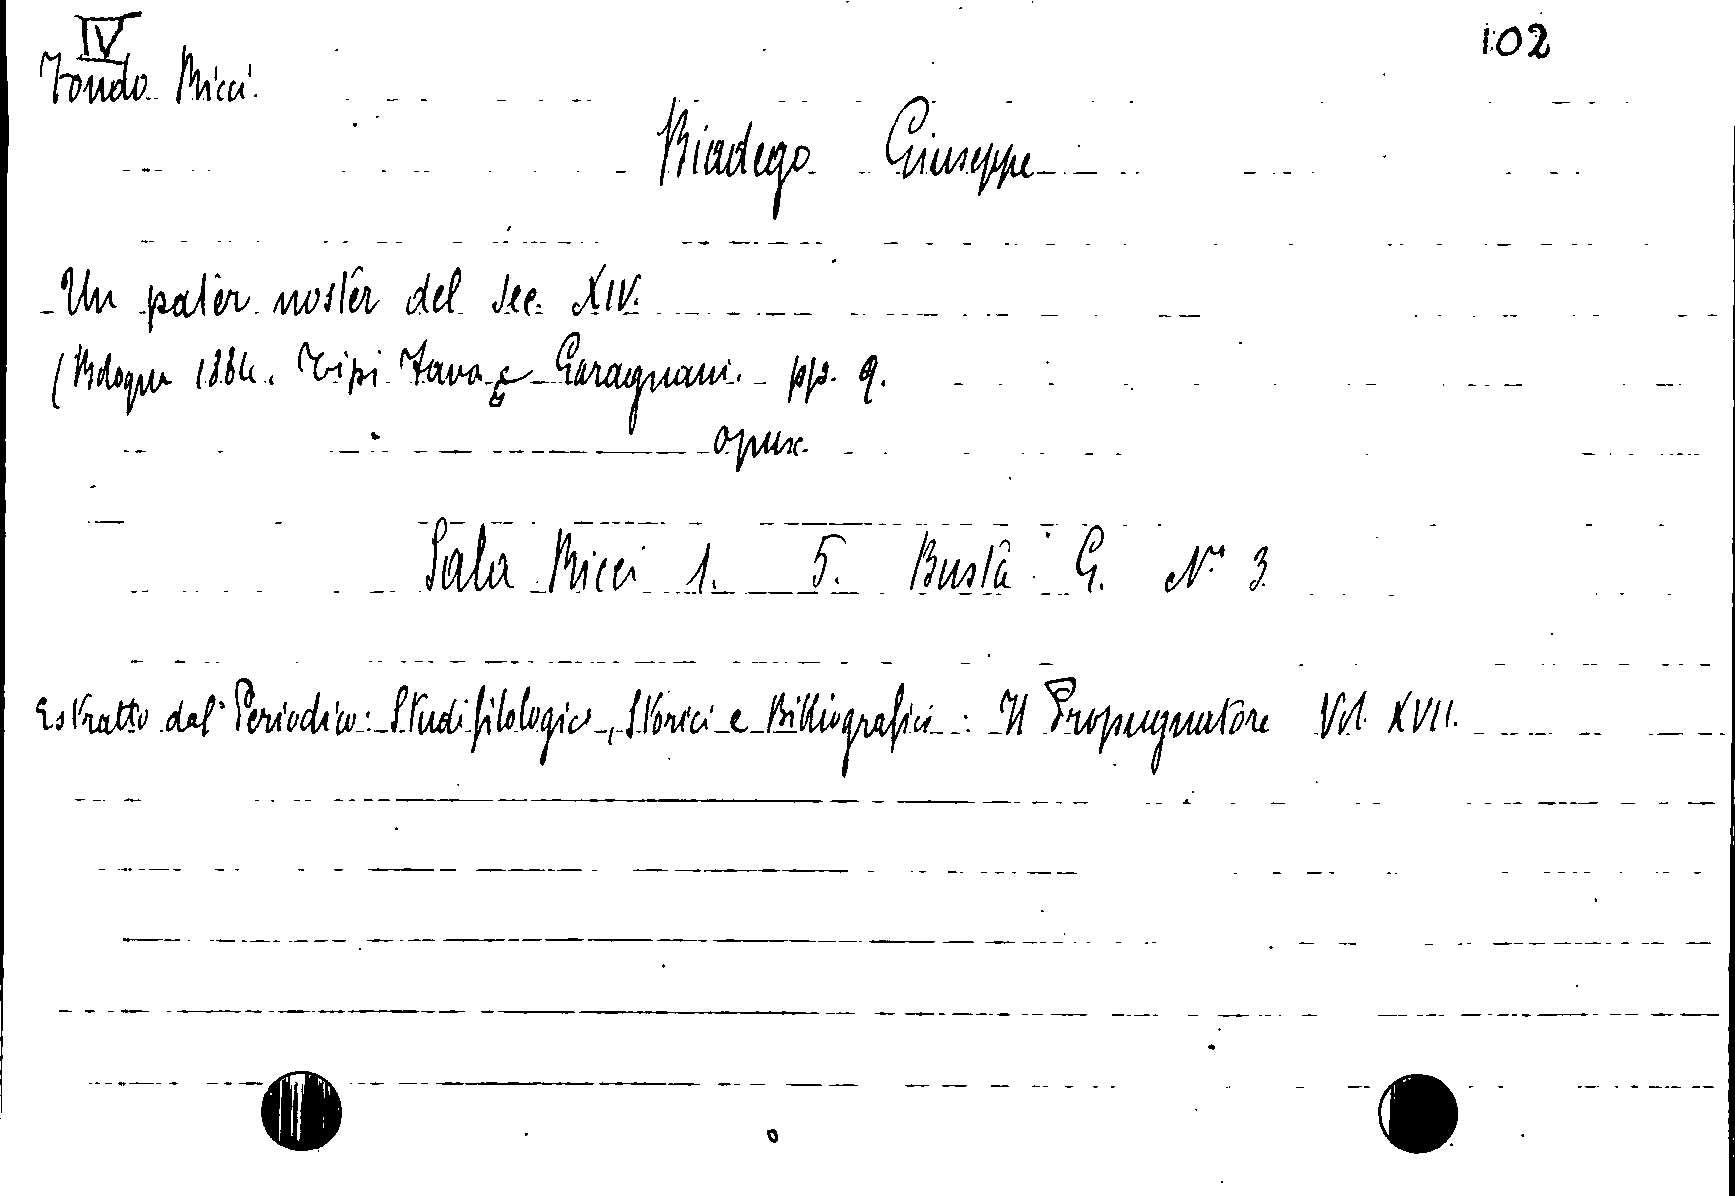 IV
102
Fondo Ricci.
Biadego Giuseppe
Un pater noster del sec. XIV.
(Bologna 1884. Tipi Fava e Garagnani. pp. 9.
opusc.
Sala Ricci 1. 5. Busta G. N° 3
Estratto dal Periodico: Studi filologici, Storici e Bibliografici: Il Propugnatore Vol. XVII.